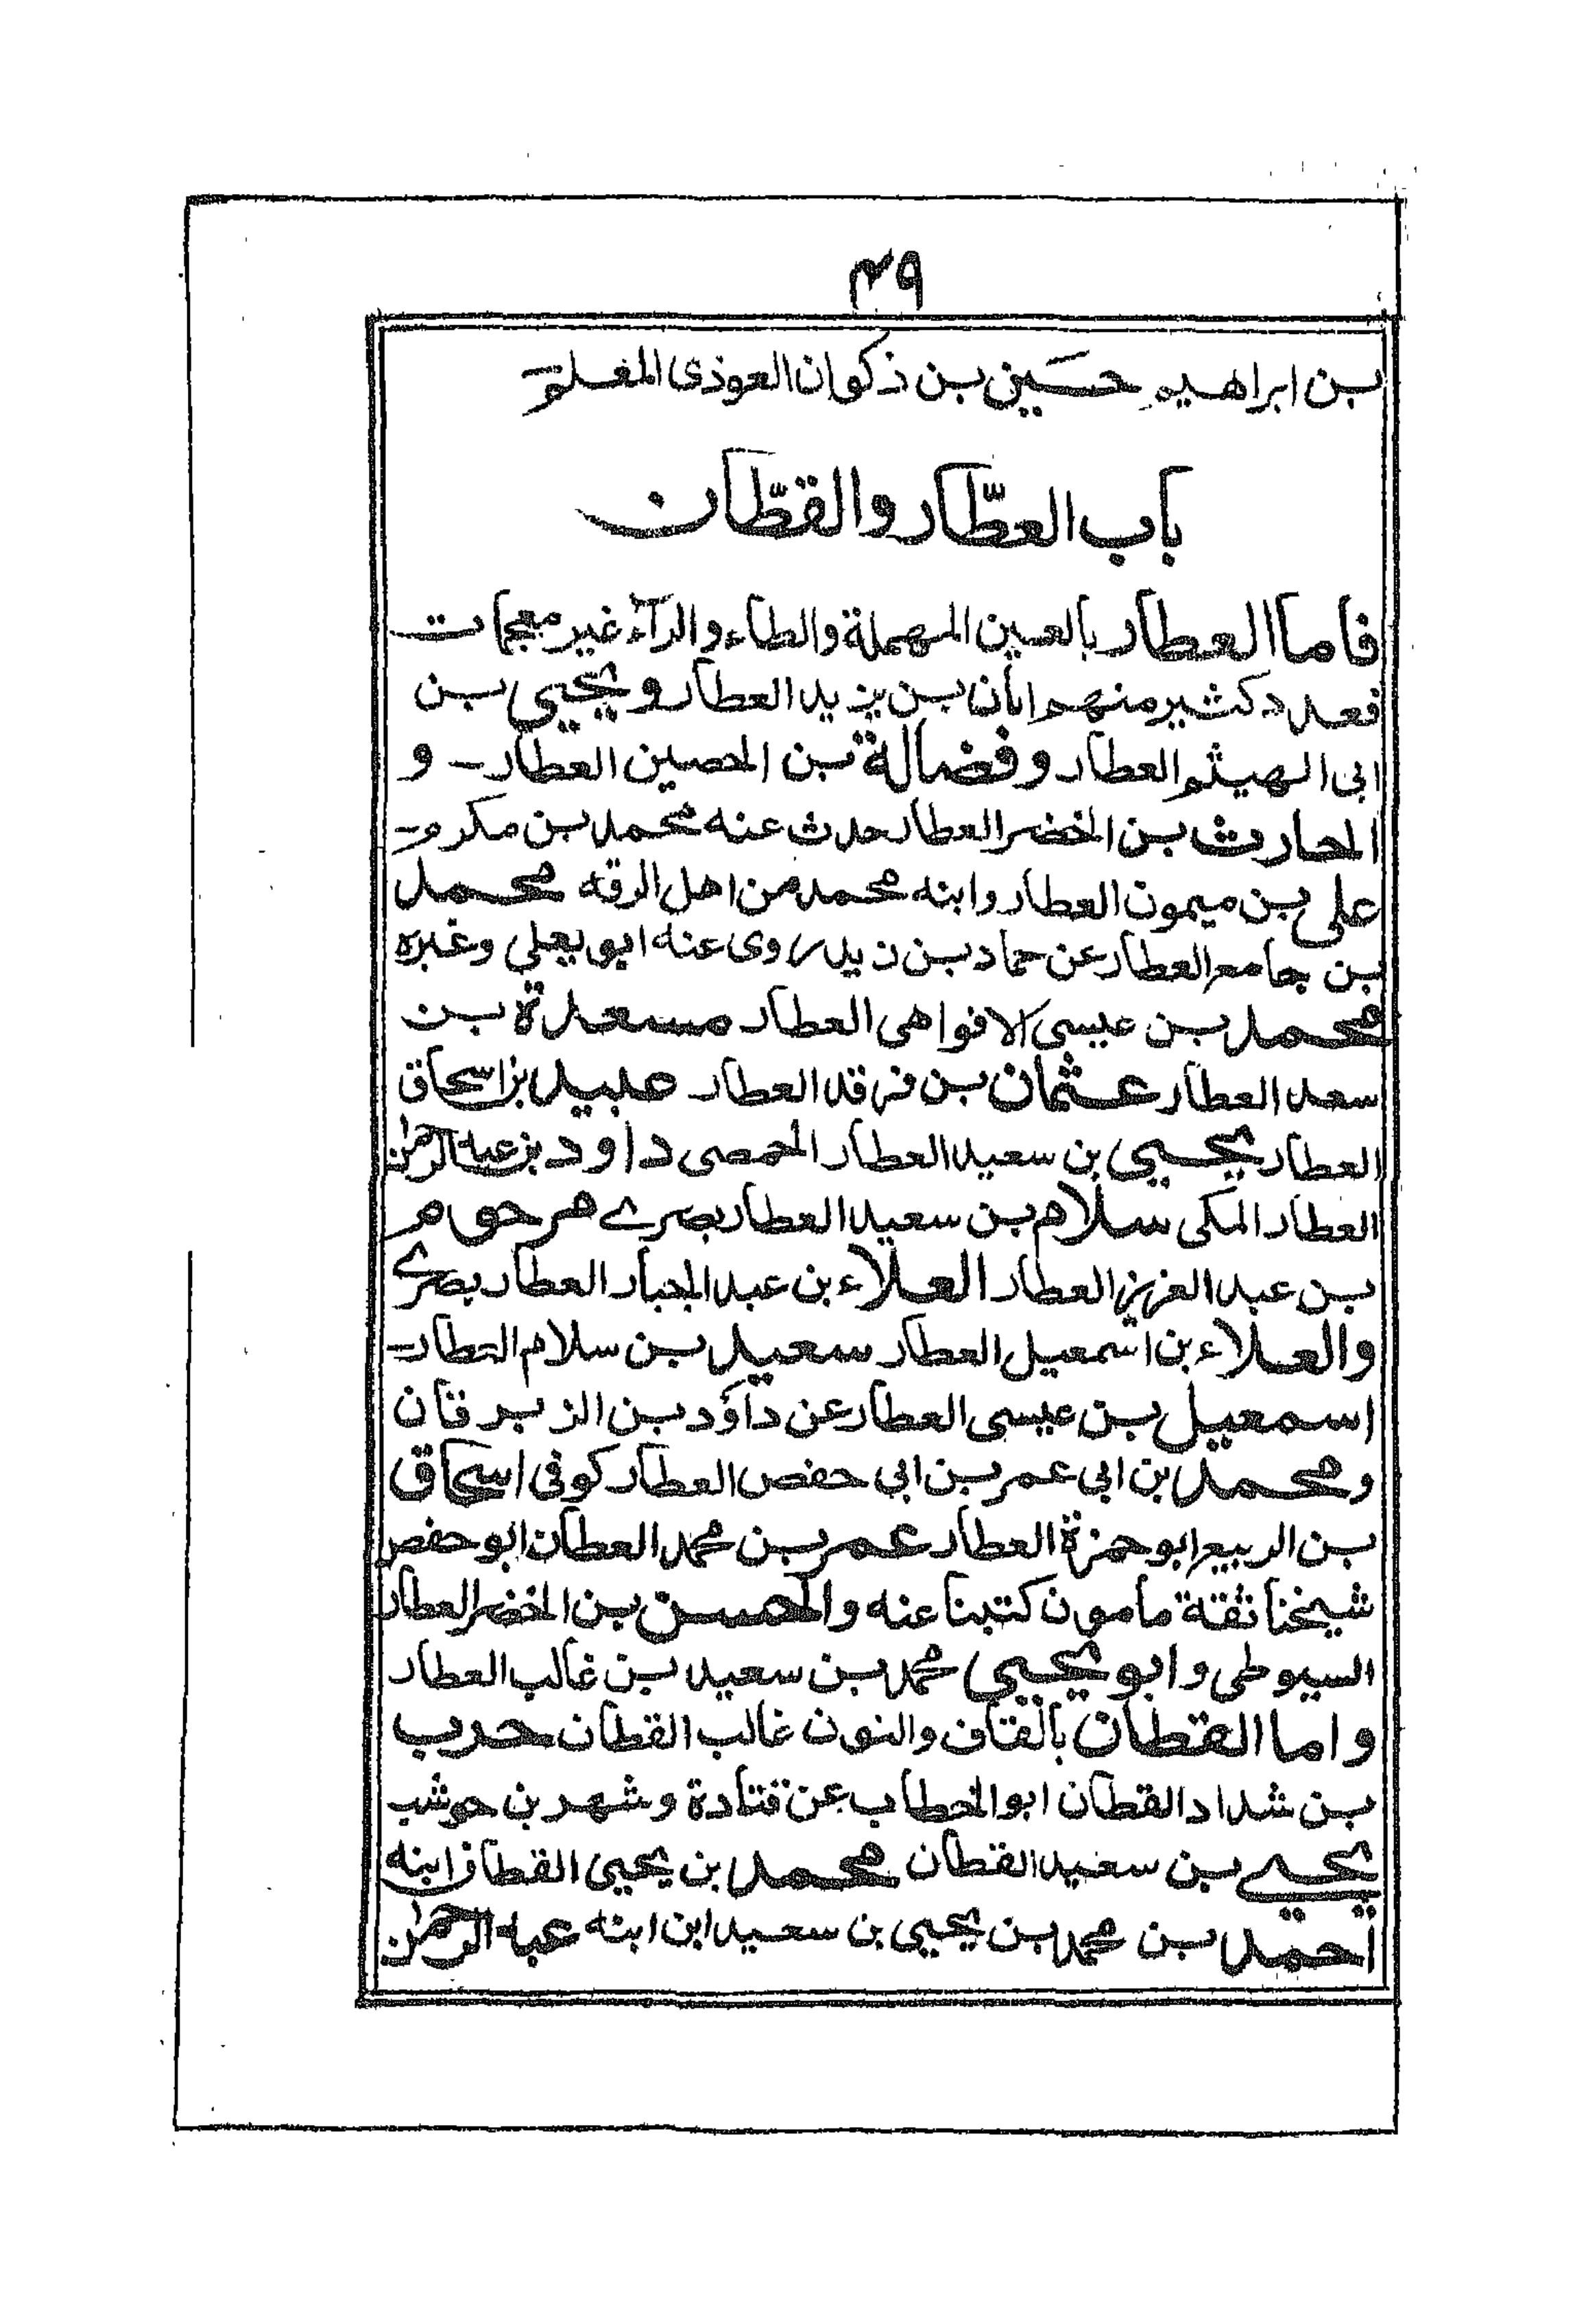 ٤٩
بن ابراهيم حسين بن ذكوان العوذى المعلم
باب العطّار والقطّان
فاما العطار بالعين المهملة والطاء والرآء غير معجمات
فعدد كثير منهم ابان بن يزيد العطار ويحيى بن
ابى الهيثم العطار وفضالة بن الحصين العطار و
الحارث بن الخضر العطار حدث عنه محمد بن مكرم
على بن ميمون العطار وابنه محمد من اهل الرقه محمد
بن جامع العطار عن حماد بن زيد روى عنه ابو يعلي وغيره
محمد بن عيسى الافواهى العطار مسعدة بن
سعد العطار عثمان بن فرقد العطار عبيد بن اسحاق
العطار يحيى بن سعيد العطار الحمصى داود بن عبد الرحمن
العطار المكى سلام بن سعيد العطار بصرے مرحوم
بن عبد العزيز العطار العلاء بن عبد الجبار العطار بصرے
والعلاء بن اسمعيل العطار سعيد بن سلام العطار
اسمعيل بن عيسى العطار عن داؤد بن الزبرقان
ومحمد بن ابى عمر بن ابي حفص العطار كوفى اسحاق
بن الربيع ابو حمزة العطار عمر بن محمد العطان ابو حفص
شيخنا ثقة مأمون كتبنا عنه والحسن بن الخضر العطار
السيوطى وابو يحيى محمد بن سعيد بن غالب العطار
واما القطان بالقاف والنون غالب القطان حرب
بن شداد القطان ابو الخطاب عن قتادة وشهر بن حوشب
يحيے بن سعيد القطان محمد بن يحيى القطان ابنه
احمد بن محمد بن يحيى بن سعيد ابن ابنه عبد الرحمن